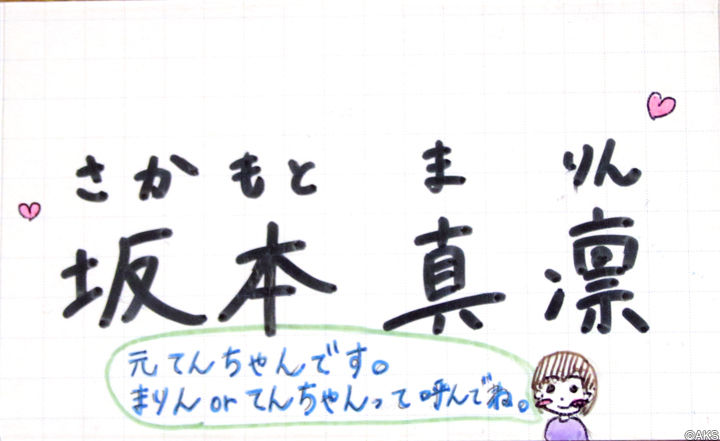 さかもと まりん
坂本 真凛
元てんちゃんです。
まりん or てんちゃんって呼んでね。
©AKS